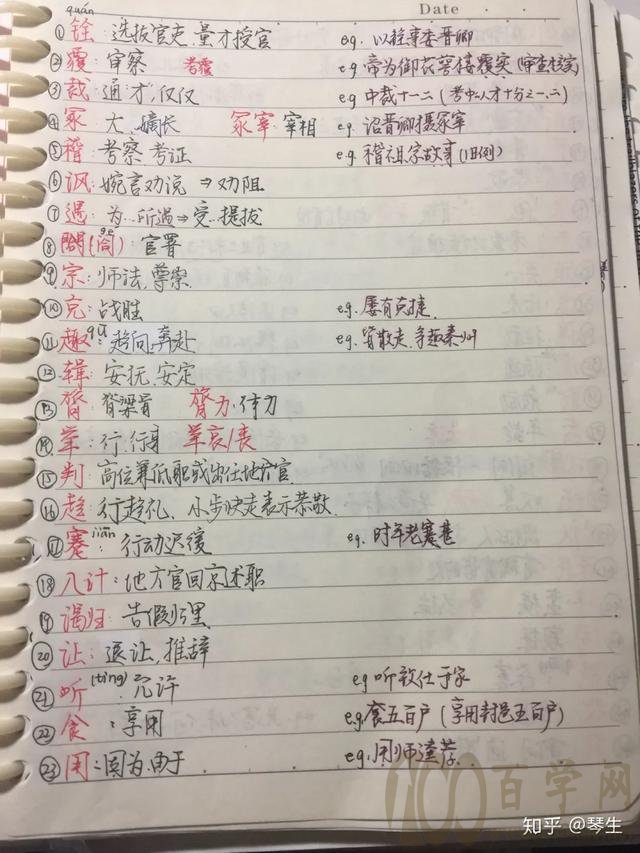 Date
quán
①铨：选拔官吏,量才授官 eg. 以铨事委晋卿
②覆 审察 考覆 eg 帝为御花萼楼覆实(审查核实)
③裁：通才,仅仅 eg 中裁十一二(考中人才十分之一、二)
④冢 大、嫡长 冢宰:宰相 eg 诏晋卿摄冢宰
⑤稽：考察,考证 eg 稽祖宗故事(旧例)
⑥讽：婉言劝说 ⇒劝阻
⑦遇：为…所遇⇒受…提拔
⑧閤(阁) 官署
⑨宗：师法,尊崇
⑩克：战胜 eg. 屡有克捷
⑪趣qū：趋向,奔赴 eg. 皆散走,争趣秦州
⑫辑：安抚,安定
⑬膂：脊梁骨 膂力:体力
⑭辈：行,行身
⑮判：高位兼低职或出任地方官
⑯趋：行趋礼、小步快走表示恭敬
⑰蹇jiǎn：行动迟缓 eg. 时年老蹇甚
⑱入计：地方官回京述职
⑲谒归：告假归里
⑳让：退让,推辞
㉑听(tīng)：允许 eg 听致仕于家
㉒食：享用 eg.食五百户(享用封邑五百户)
㉓用：因为,由于 eg.用师逵荐
100百学网
知乎 @琴生